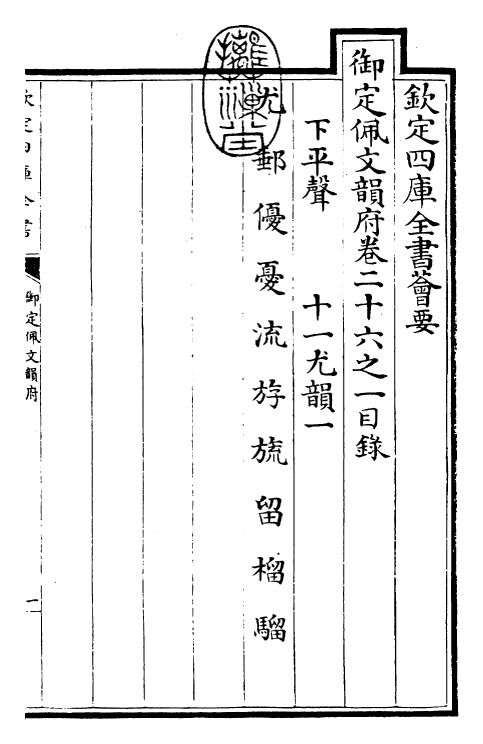 欽定四庫全書薈要
御定佩文韻府卷二十六之一目錄
下平聲　十一尤韻一
尤　郵　優　憂　流　斿　旒　留　榴　騮
欽定四庫全書
御定佩文韻府
一